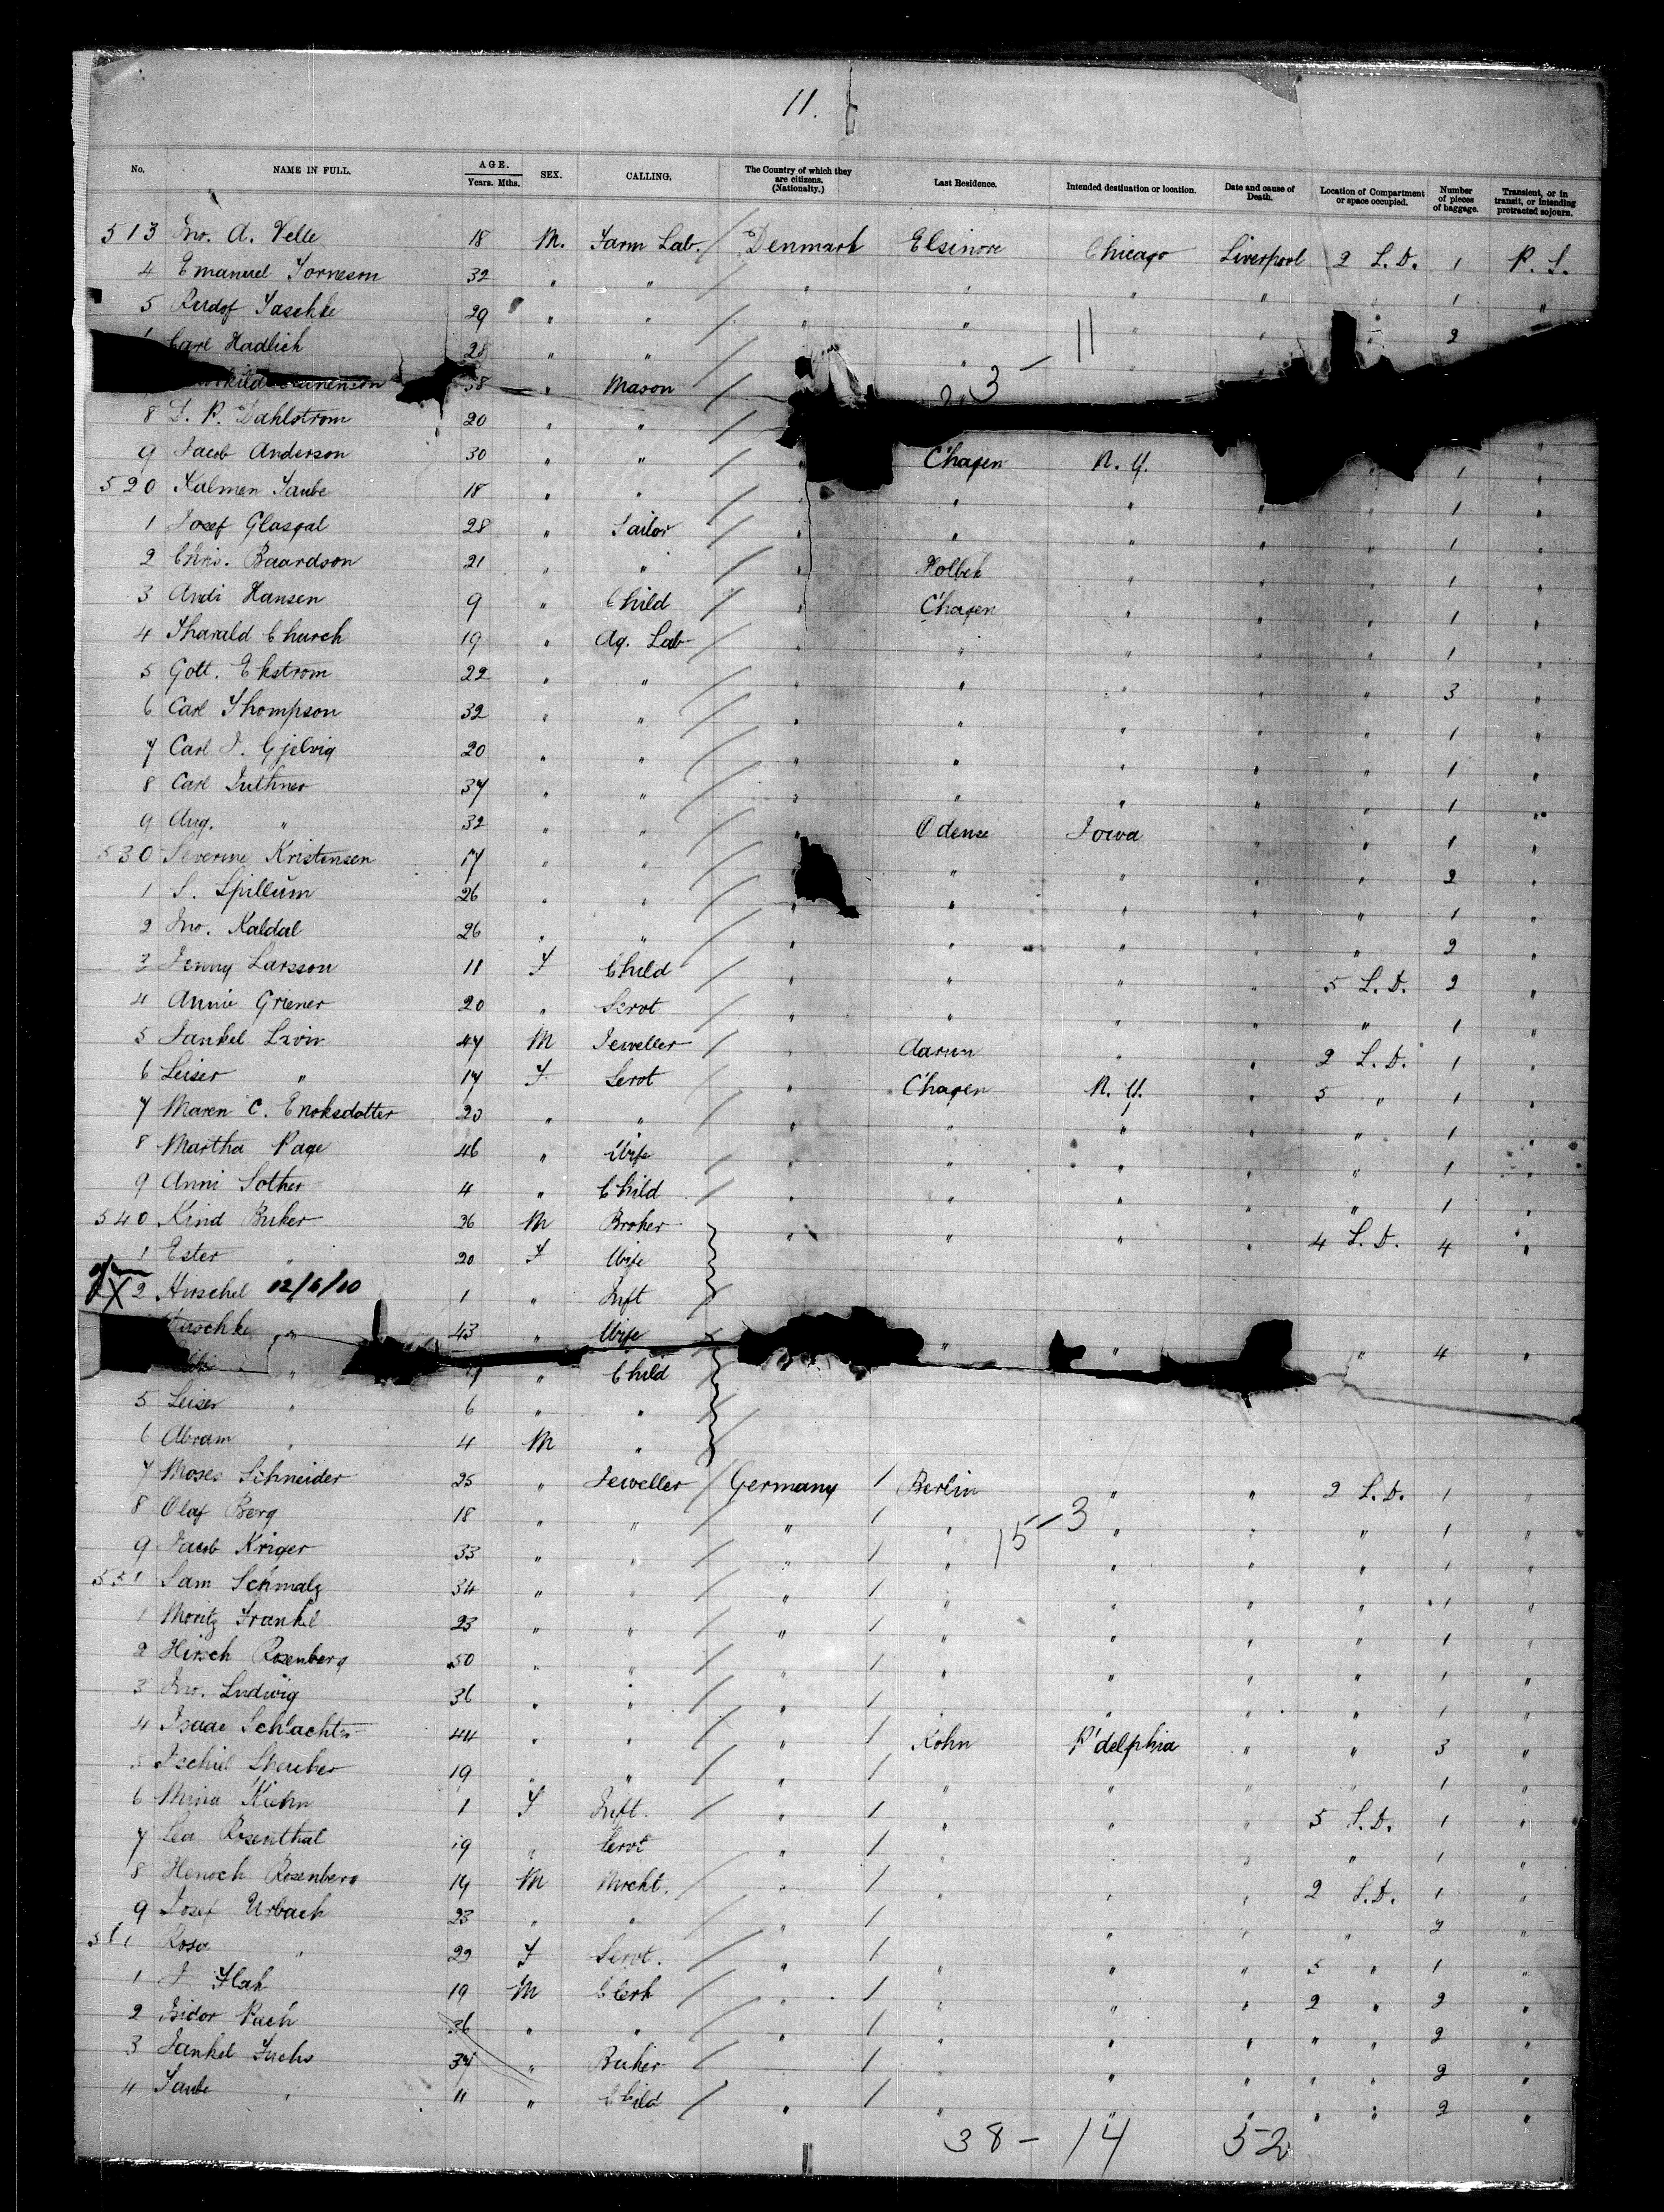 11.
No. NAME IN FULL. AGE. Years. Mths. SEX. CALLING. The Country of which they are citizens. (Nationality.) Last Residence. Intended destination or location. Date and cause of Death. Location of Compartment or space occupied. Number of pieces of baggage. Transient, or in transit, or intending protracted sojourn.
513 Jno. A. Velle 18 M. Farm Lab. / Denmark Elsinore Chicago Liverpool 2 S. D. 1 P. S.
4 Emanuel Torneson 32 " " / " " " " " 1 "
5 Rudof Taschke 29 " " / " " " " " 2 "
Carl Hadlich 28 " " / "
38 " Mason /
8 D. P. Dahlstrom 20 " " /
9 Jacob Anderson 30 " " / " C'hagen N. Y. " 1 "
520 Kalmen Taube 18 " " / " " " " " 1 "
1 Josef Glasgal 28 " Tailor / " " " " " 1 "
2 Chris. Baardson 21 " " / " Holbek " " " 1 "
3 Andi Hansen 9 " Child / " C'hagen " " " 1 "
4 Tharald Church 19 " Ag. Lab / " " " " " 1 "
5 Gott. Ekstrom 22 " " / " " " " " 3 "
6 Carl Thompson 32 " " / " " " " " 1 "
7 Carl J. Gjelvig 20 " " / " " " " " 1 "
8 Carl Juthner 37 " " / " " " " " 1 "
9 Aug. " 32 " " / " Odense Iowa " " 1 "
530 Severine Kristensen 17 " " / " " " " 2 "
1 S. Spillum 26 " " / " " " " " 1 "
2 Jno. Kaldal 26 " " / " " " " " 2 "
3 Jenny Larsson 11 F Child / " " " 5 S. D. 2 "
4 Annie Griener 20 " Servt / " " " " " 1 "
5 Jankel Liviv 47 M Jeweller / " Aarun " " 2 S. D. 1 "
6 Leiser " 17 F Servt / " C'hagen N. Y. " 5 " 1 "
7 Maren C. Enoksdatter 20 " " / " " " " " 1 "
8 Martha Page 46 " Wife / " " " " " 1 "
9 Anni Sother 4 " Child / " " " " " 1 "
540 Kind Buker 26 M Broker " " " " 4 S. D. 4 "
1 Ester " 20 F Wife
X 2 Hirschel " 12/6/10 1 " Inft
Taschke " 43 " Wife " " " 4 "
" " Child
5 Leiser " 6 " " /
6 Abram " 4 M " /
7 Moses Schneider 25 " Jeweller / Germany / Berlin " " 2 S. D. 1 "
8 Olaf Berg 18 " " / " / " 15-3 " " " 1 "
9 Jacob Kriger 33 " " / " / " " " " 1 "
551 Sam Schmalz 34 " " / " / " " " " 1 "
1 Moritz Frankel 23 " " / " / " " " " 1 "
2 Hirsch Rosenberg 50 " " / " / " " " " 1 "
3 Jno. Ludwig 36 " " / " / " " " " 1 "
4 Isaac Schlachter 44 " " / " / Kohn P'delphia " " 3 "
5 19 " " / " / " " " " 1 "
6 Mina Kuhn 1 F Inft. / " / " " " 5 S. D. 1 "
7 Lea Rosenthal 19 " Servt / " / " " " " 1 "
8 Henoch Rosenberg 19 M Mrcht. / " / " " " 2 S. D. 1 "
9 Josef Urbach 23 " " / " / " " " " 2 "
Rosa " 22 F Servt. / " / " " " 5 " 1 "
1 J. Flah 19 M Clerk / " / " " " 2 " 2 "
2 Isidor Pach 36 " " / " / " " " " " 2 "
3 Jankel Fuchs 34 " Buker / / " " " " 2 "
4 Taube " 11 " Child / " / " " " " " 2 "
38 - 14 52